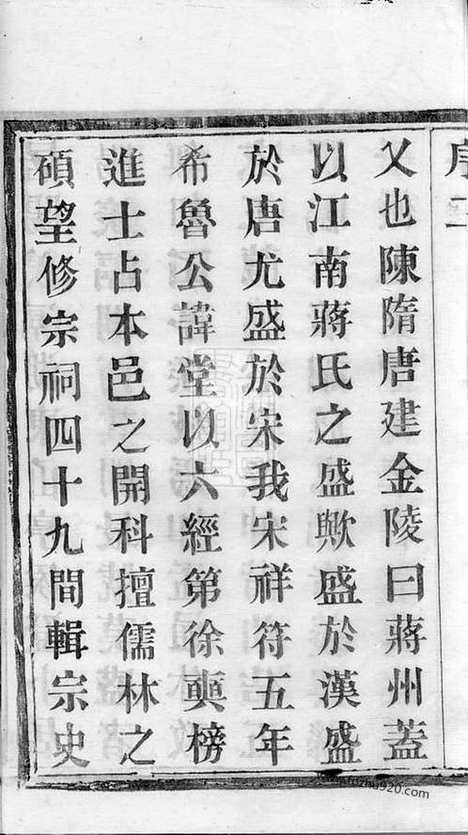 序二
乂也陳隋唐建金陵曰蔣州蓋
以江南蔣氏之盛歟盛於漢盛
於唐尤盛於宋我宋祥符五年
希魯公諱堂以六經第徐奭榜
進士占本邑之開科擅儒林之
碩望修宗祠四十九間輯宗史